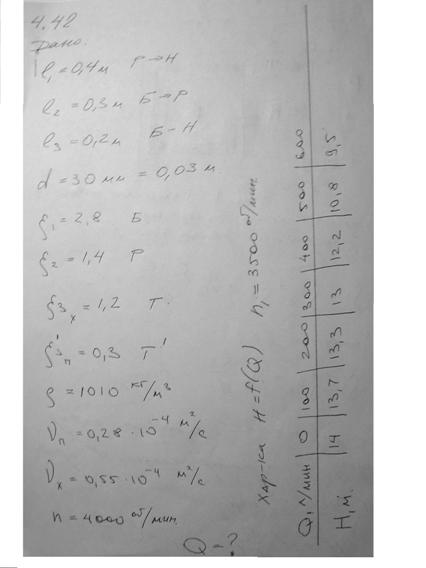 4.42
Дано.
l₁ = 0,4 м Р→Н
l₂ = 0,3 м Б→Р
l₃ = 0,2 м Б-Н
d = 30 мм = 0,03 м.
ξ₁ = 2,8 Б
ξ₂ = 1,4 Р
ξ₃ₓ = 1,2 Т.
ξ'₃ₙ = 0,3 Т'
ρ = 1010 кг/м³
νₙ = 0,28 · 10⁻⁴ м²/с
νₓ = 0,55 · 10⁻⁴ м²/с
n = 4000 об/мин.
Q = ?
Хар-ка H = f(Q) n₁ = 3500 об/мин.
Q, л/мин | 0 | 100 | 200 | 300 | 400 | 500 | 600
H, м. | 14 | 13,7 | 13,3 | 13 | 12,2 | 10,8 | 9,5